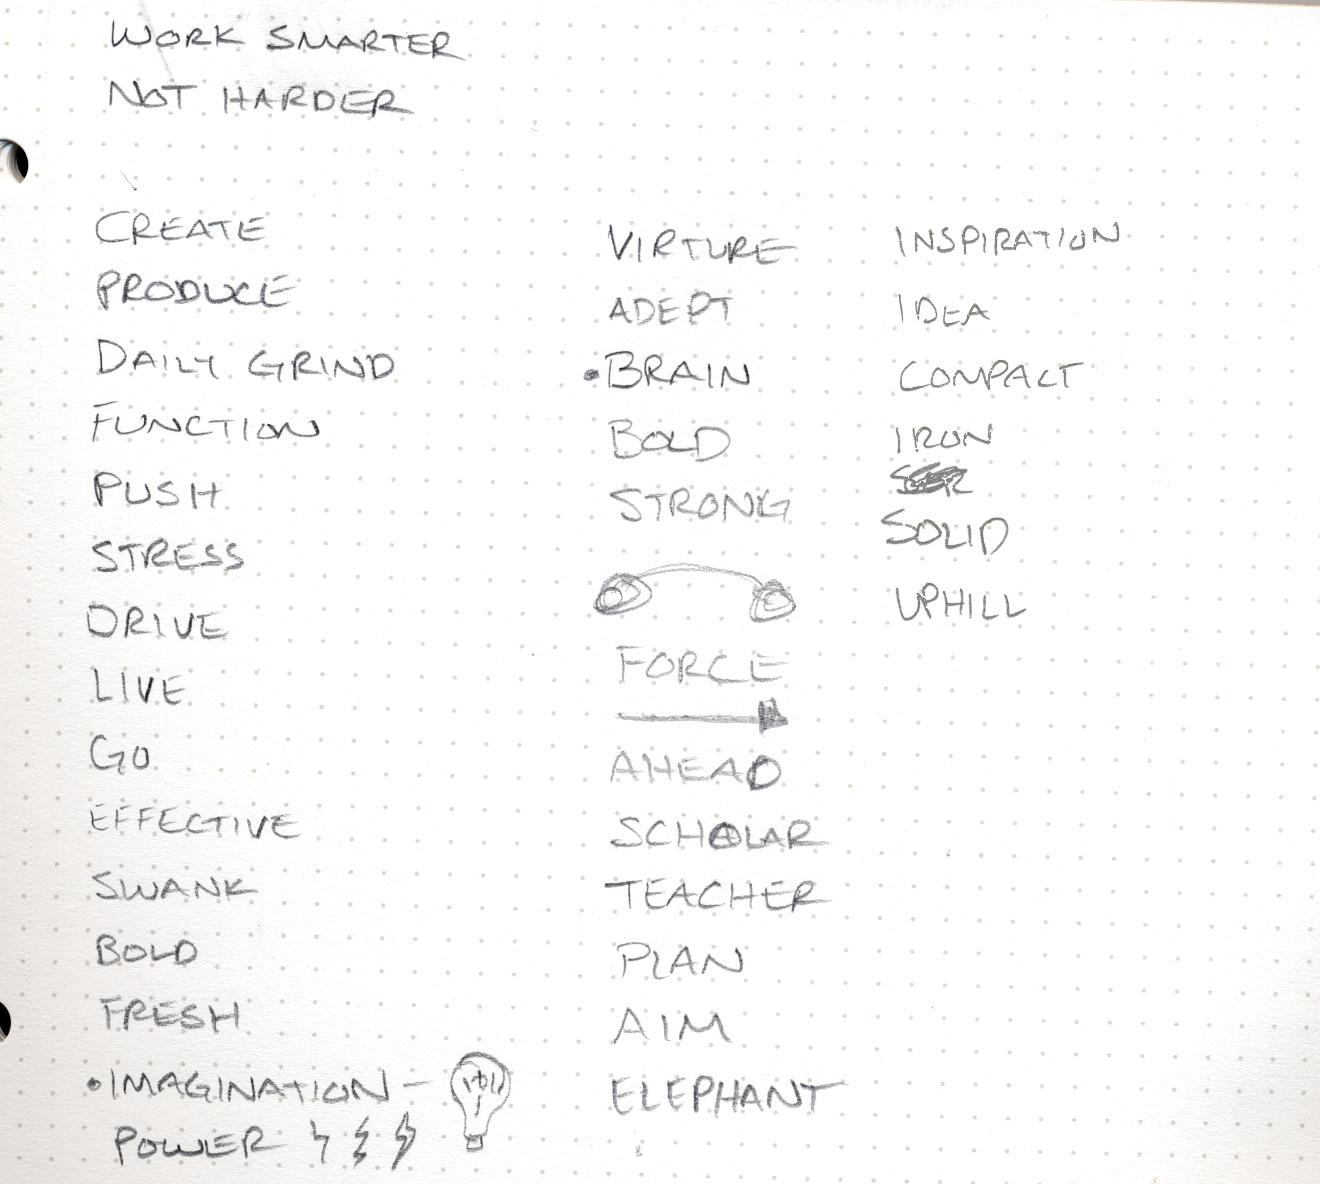 WORK SMARTER
NOT HARDER
CREATE
PRODUCE
DAILY GRIND
FUNCTION
PUSH
STRESS
DRIVE
LIVE
GO
EFFECTIVE
SWANK
BOLD
FRESH
•IMAGINATION –
POWER
VIRTURE
ADEPT
•BRAIN
BOLD
STRONG
FORCE
AHEAD
SCHOLAR
TEACHER
PLAN
AIM
ELEPHANT
INSPIRATION
IDEA
COMPACT
IRON
SOLID
UPHILL